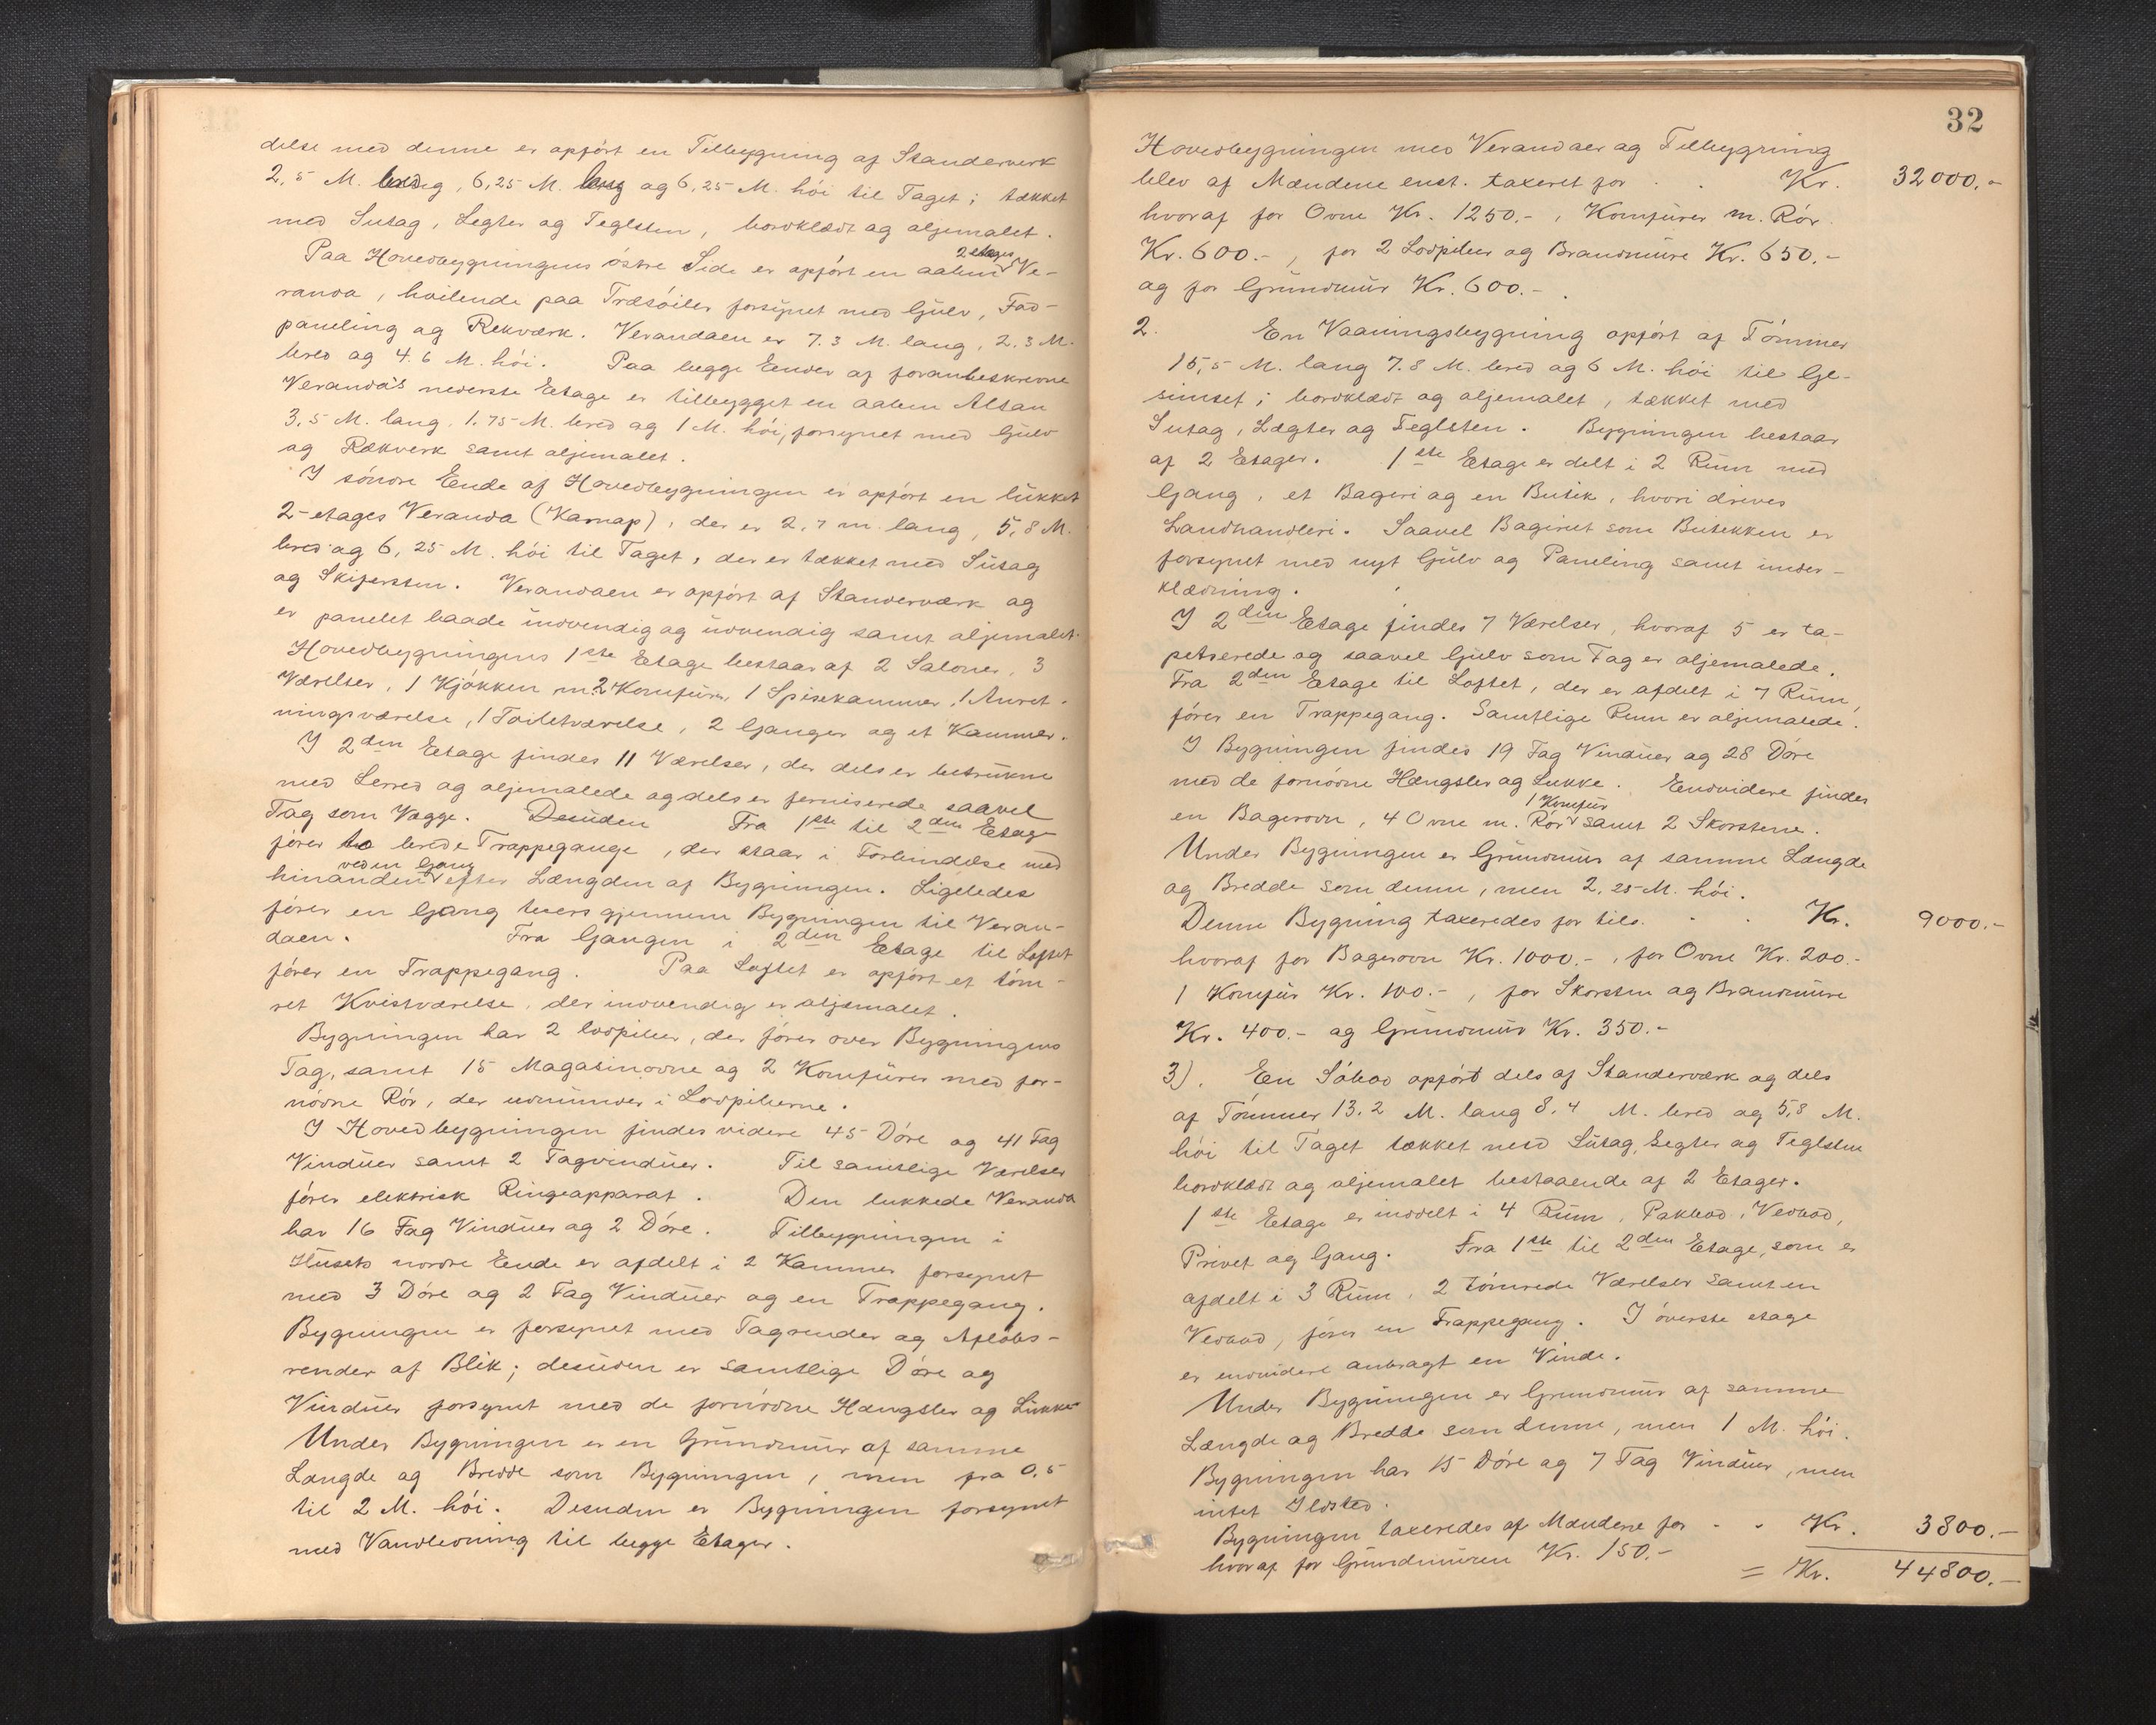 delse med denne er opført en Tilbygning af Standerverk
2,5 M. bred, 6,25 M. lang og 6,25 M. høi til Taget; tækket
med Sutag, Legter og Teglsten, bordklædt og oljemalet.
Paa Hovedbygningens østre Side er opført en aaben 2 etages Ve-
randa, hvilende paa Træsøiler forsynet med Gulv, Fad-
paneling og Rekværk. Verandaen er 7.3 M. lang, 2.3 M.
bred og 4.6 M. høi. Paa begge Ender af foranbeskrevne
Veranda's nederste Etage er tilbygget en aaben Altan
3,5 M. lang, 1.75 M. bred og 1 M. høi, forsynet med Gulv
og Rækverk samt oljemalet.
I søndre Ende af Hovedbygningen er opført en lukket
2-etages Veranda (Karnap), der er 2,7 m. lang, 5,8 M.
bred og 6,25 M. høi til Taget, der er tækket med Sutag
og Skifersten. Verandaen er opført af Standerværk og
er panelet baade indvendig og udvendig samt oljemalet.
Hovedbygningens 1ste Etage bestaar af 2 Saloner, 3
Værelser, 1 Kjøkken m. 2 Komfurer, 1 Spisekammer, 1 Anret-
ningsværelse, 1 Toiletværelse, 2 Ganger og et Kammer.
I 2den Etage findes 11 Værelser, der dels er betrukne
med Lerred og oljemalede og dels er ferniserede saavel
Tag som Vægge. Desuden Fra 1ste til 2den Etage
fører to brede Trappegange, der staar i Forbindelse med
hinanden ved en Gang efter Længden af Bygningen. Ligeledes
fører en Gang tvers gjennem Bygningen til Veran-
daen. Fra Gangen i 2den Etage til Loftet
fører en Trappegang. Paa Loftet er opført et tøm-
ret Kvistværelse, der indvendig er oljemalet.
Bygningen har 2 Lodpiber, der fører over Bygningens
Tag, samt 15 Magasinovne og 2 Komfurer med for-
nødne Rør, der udmunder i Lodpiberne.
I Hovedbygningen findes videre 45 Døre og 41 Fag
Vinduer samt 2 Tagvinduer. Til samtlige Værelser
fører elektrisk Ringeapparat. Den lukkede Veranda
har 16 Fag Vinduer og 2 Døre. Tilbygningen i
Husets nordre Ende er afdelt i 2 Kammer forsynet
med 3 Døre og 2 Fag Vinduer og en Trappegang.
Bygningen er forsynet med Tagrender og Afløbs-
render af Blik; desuden er samtlige Døre og
Vinduer forsynet med de fornødne Hængsler og Lukke
Under Bygningen er en Grundmur af samme
Længde og Bredde som Bygningen, men fra 0,5
til 2 M. høi. Desuden er Bygningen forsynet
med Vandledning til begge Etager.
32
Hovedbygningen med Verandaer og Tilbygning
blev af Mændene enst. taxeret for . . Kr. 32000.-
hvoraf for Ovne Kr. 1250.-, Komfurer m. Rør
Kr. 600.-, for 2 Lodpiber og Brandmure Kr. 650.-
og for Grundmur Kr. 600.-.
2. En Vaaningsbygning opført af Tømmer
15,5 M. lang 7.8 M. bred og 6 M. høi til Ge-
simset; bordklædt og oljemalet, tækket med
Sutag, Lægter og Teglsten. Bygningen bestaar
af 2 Etager. 1ste Etage er delt i 2 Rum med
Gang, et Bageri og en Butik, hvori drives
Landhandleri. Saavel Bageriet som Butikken er
forsynet med nyt Gulv og Paneling samt under-
klædning.
I 2den Etage findes 7 Værelser, hvoraf 5 er ta-
petserede og saavel Gulv som Tag er oljemalede.
Fra 2den Etage til Loftet, der er afdelt i 7 Rum,
fører en Trappegang. Samtlige Rum er oljemalede.
I Bygningen findes 19 Fag Vinduer og 28 Døre
med de fornødne Hængsler og Lukke. Endvidere findes
en Bagerovn, 4 Ovne m. Rør 1 Komfur samt 2 Skorstene.
Under Bygningen er Grundmur af samme Længde
og Bredde som denne, men 2,25 M. høi.
Denne Bygning taxeredes for tils. . . Kr. 9000.-
hvoraf for Bagerovn Kr. 1000.-, for Ovne Kr. 200.-
1 Komfur Kr. 100.-, for Skorsten og Brandmure
Kr. 400.- og Grundmur Kr. 350.-
3). En Søbod opført dels af Standerværk og dels
af Tømmer 13.2 M. lang 8.4 M. bred og 5,8 M.
høi til Taget tækket med Sutag, Legter og Teglsten
bordklædt og oljemalet bestaaende af 2 Etager.
1ste Etage er inddelt i 4 Rum, Pakbod, Vedbod,
Privet og Gang. Fra 1ste til 2den Etage, som er
afdelt i 3 Rum, 2 tømrede Værelser samt en
Vedbod, fører en Trappegang. I øverste etage
er endvidere anbragt en Vinde.
Under Bygningen er Grundmur af samme
Længde og Bredde som denne, men 1 M. høi.
Bygningen har 15 Døre og 7 Fag Vinduer, men
intet Ildsted.
Bygningen taxeredes af Mændene for - - Kr. 3800.-
hvoraf for Grundmuren Kr. 150.-
= Kr. 44800.-